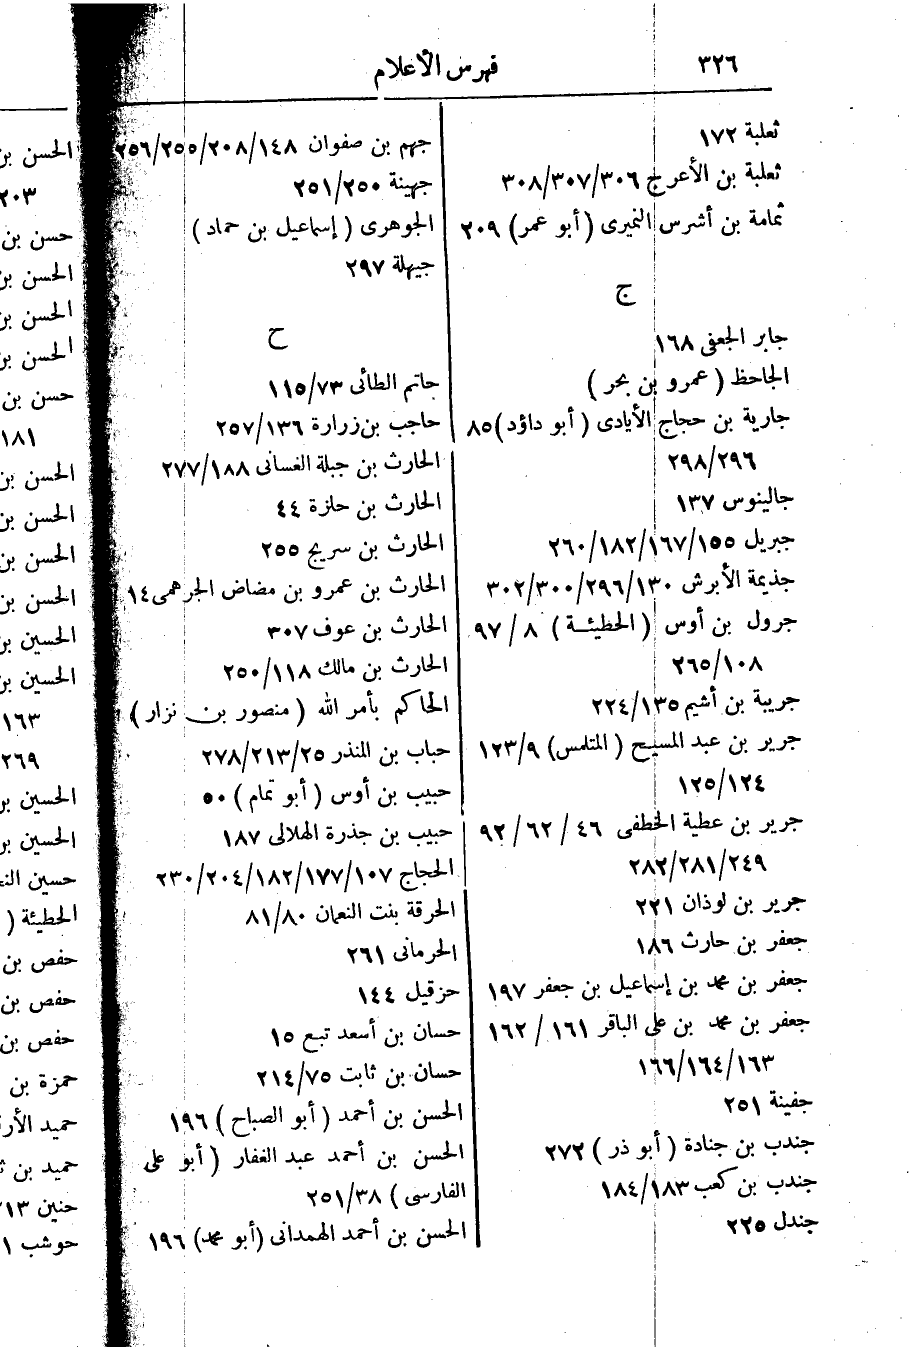 ٣٢٦
فهرس الأعلام
ثعلبة ١٧٢
ثعلبة بن الأعرج ٣٠٨/٣٠٧/٣٠٦
ثمامة بن أشرس النميرى (أبو عمر) ٢٠٩
ج
جابر الجعفى ١٦٨
الجاحظ (عمرو بن بحر)
جارية بن حجاج الأيادى (أبو داؤد) ٨٥
٢٩٨/٢٩٦
جالينوس ١٣٧
جبريل ٢٦٠/١٨٢/١٦٧/١٥٥
جذيمة الأبرش ٣٠٢/٣٠٠/٢٩٦/١٣٠
جرول بن أوس (الحطيئة) ٩٧/٨
٢٦٥/١٠٨
جريبة بن أشيم ٢٢٤/١٣٥
جرير بن عبد المسيح (المتلمس) ١٢٣/٩
١٢٥/١٢٤
جرير بن عطية الخطفى ٩٢/٦٢/٤٦
٢٨٢/٢٨١/٢٤٩
جرير بن لوذان ٢٢١
جعفر بن حارث ١٨٦
جعفر بن محمد بن إسماعيل بن جعفر ١٩٧
جعفر بن محمد بن على الباقر ١٦٢/١٦١
١٦٦/١٦٤/١٦٣
جفينة ٢٥١
جندب بن جنادة (أبو ذر) ٢٧٢
جندب بن كعب ١٨٤/١٨٣
جندل ٢٢٥
جهم بن صفوان ٢٥٦/٢٥٥/٢٠٨/١٤٨
جهينة ٢٥١/٢٥٠
الجوهرى (إسماعيل بن حماد)
جيهلة ٢٩٧
ح
حاتم الطائى ١١٥/٧٣
حاجب بن زرارة ٢٥٧/١٣٦
الحارث بن جبلة الغسانى ٢٧٧/١٨٨
الحارث بن حلزة ٤٤
الحارث بن سريج ٢٥٥
الحارث بن عمرو بن مضاض الجرهمى ١٤
الحارث بن عوف ٣٠٧
الحارث بن مالك ٢٥٠/١١٨
الحاكم بأمر الله (منصور بن نزار)
حباب بن المنذر ٢٧٨/٢١٣/٢٥
حبيب بن أوس (أبو تمام) ٥٠
حبيب بن جذرة الهلالى ١٨٧
الحجاج ٢٣٠/٢٠٤/١٨٢/١٧٧/١٠٧
الحرقة بنت النعمان ٨١/٨٠
الحرمانى ٢٦١
حزقيل ١٤٤
حسان بن أسعد تبع ١٥
حسان بن ثابت ٢١٤/٧٥
الحسن بن أحمد (أبو الصباح) ١٩٦
الحسن بن أحمد عبد الغفار (أبو على
الفارسى) ٢٥١/٣٨
الحسن بن أحمد الهمدانى (أبو محمد) ١٩٦
الحسن بن
٢٠٣
حسن بن
الحسن بن
الحسن بن
الحسن بن
حسن بن
١٨١
الحسن بن
الحسن بن
الحسن بن
الحسن بن
الحسين بن
الحسين بن
١٦٣
٢٦٩
الحسين بن
الحسين بن
حسين
الحطيئة (
حفص بن
حفص بن
حفص بن
حمزة بن
حميد
حميد بن
حنين
حوشب